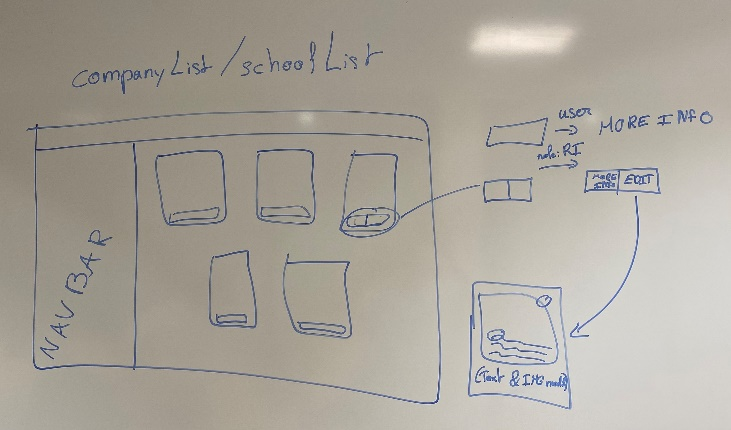 companyList/schoolList
NAVBAR
user
MORE INFO
MORE INFO
EDIT
(Text & IMG